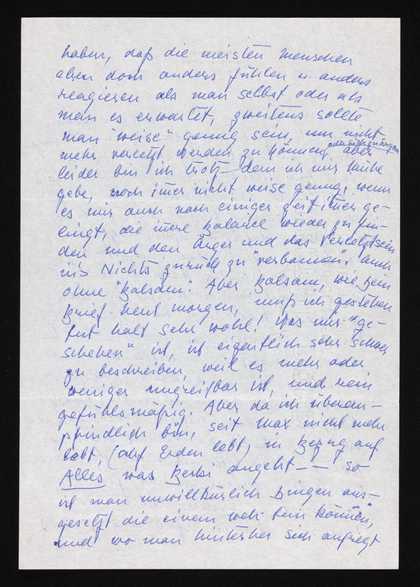 haben, daß die meisten Menschen
eben doch anders fühlen u. anders
reagieren als man selbst oder als
man es erwartet, zweitens sollte
man "weise" genug sein, um nicht
mehr verletzt werden zu können, aber
leider bin ich trotz dem ich mir Mühe
gebe, noch immer nicht weise genug, wenn
es mir auch nach einiger Zeit immer ge-
lingt, die innere Balance wieder zu fin-
den und den Ärger und das Verletztsein
in's Nichts zurück zu "verbannen" auch
ohne "Balsam". Aber Balsam, wie Dein
Brief heut morgen, muß ich gestehen
tut halt sehr wohl! Was mir "ge-
schehen" ist, ist eigentlich sehr schwer
zu beschreiben, weil es mehr oder
weniger ungreifbar ist, und rein
gefühlsmäßig. Aber da ich überem-
pfindlich bin, seit Max nicht mehr
lebt, (auf Erden lebt) in Bezug auf
Alles was angeht — — so
ist man unwillkürlich Dingen aus-
gesetzt die einem weh tun können,
und wo man hinterher sich aufregt